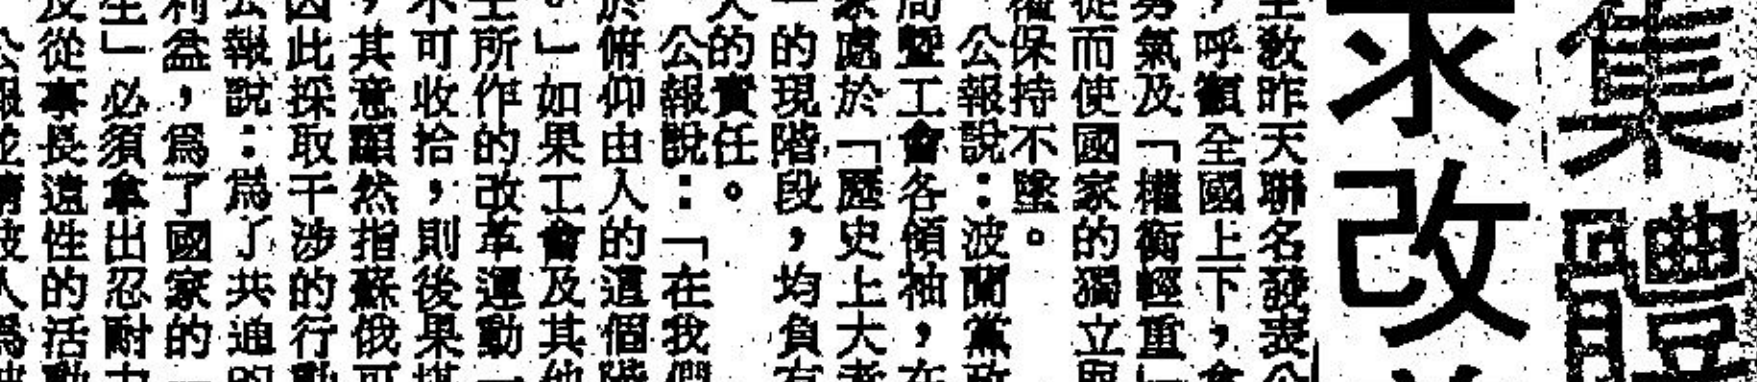 集體
求改
主教昨天聯名發表公
，呼籲全國上下，
勇氣及「權衡輕重」
從而使國家的獨立
保持不墜。
公報說：波蘭黨政
曁工會各領袖，在
家處於「歷史上大
的現階段，均負有
的責任。
公報說：「在我們
於俯仰由人的這個階
。」如果工會及其他
所作的改革運動一
不可收拾，則後果堪
，其意顯然指蘇俄可
因此採取干涉的行動
公報說：爲了共通的
利益，爲了國家的
生」必須拿出忍耐力
及從事長遠性的活動